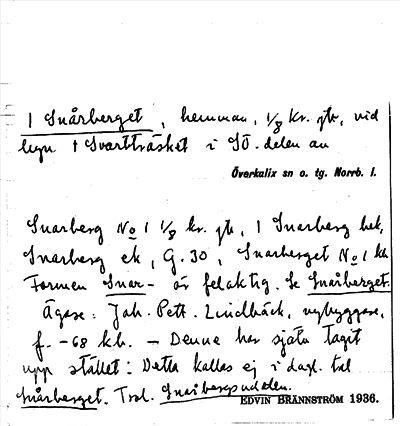 1 Snårberget, hemman, 1/8 kr. gtr, vid
byn † Svartträsket i SÖ. delen av
Överkalix sn o. tg. Norrb. l.
Snarberg No 1 1/8 kr. gtr, 1 Snarberg bek,
Snarberg ek, G. 30, Snarberget No 1 kb
Formen Snar- är felaktig. Se Snårberget.
Ägare: Joh. Pett. Lindbäck, nybyggare,
f. -68 kb. — Denne har själv tagit
upp stället: Detta kallas ej i dagl. tal
Snårberget. Trol. Snårbergsudden.
EDVIN BRÄNNSTRÖM 1936.